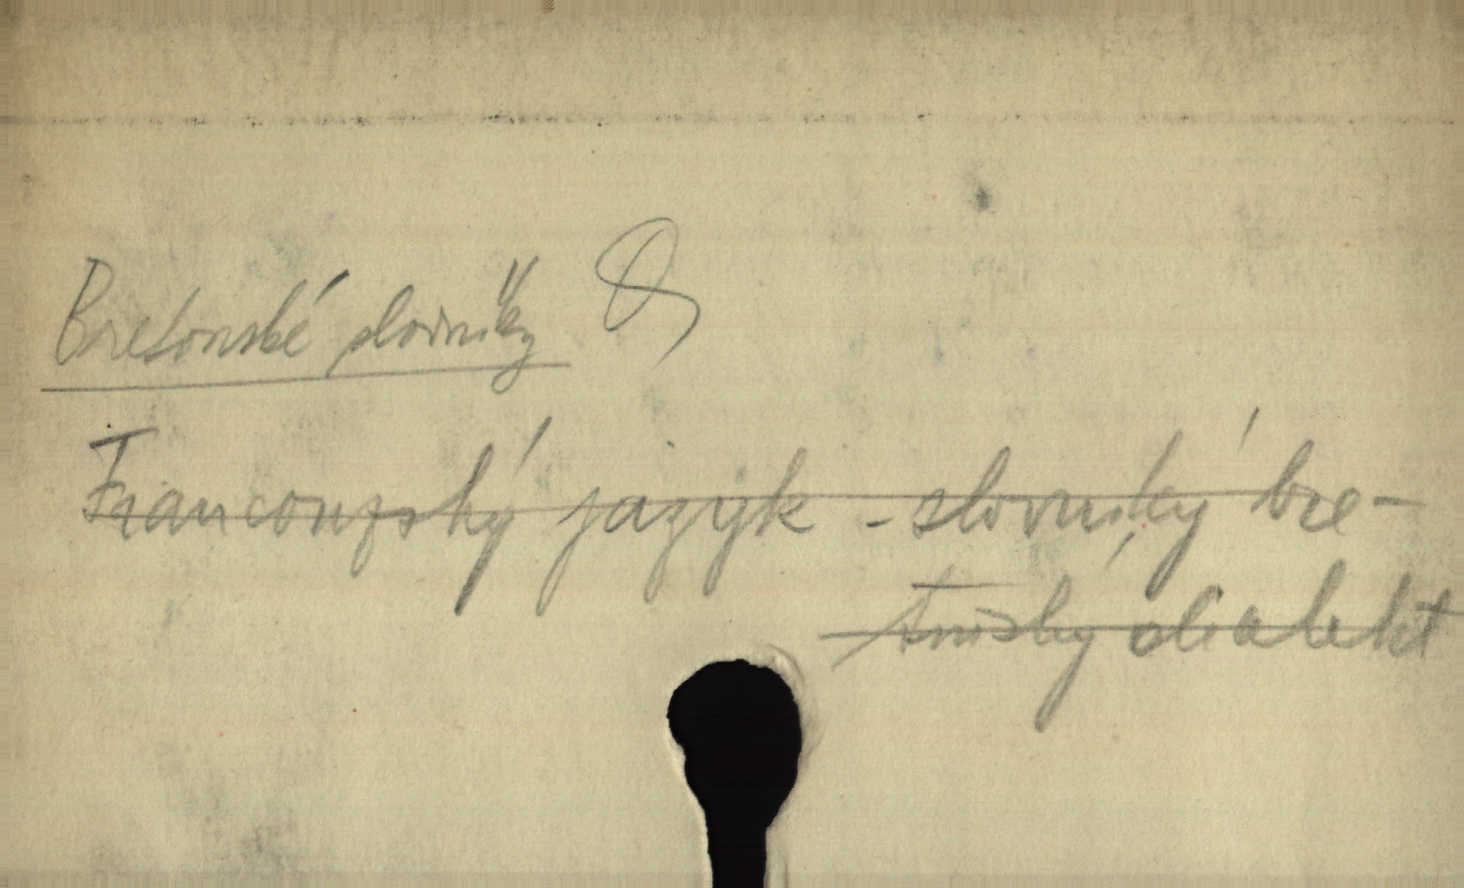 Bretonské slovníky
Francouzský jazyk - slovníky bre-
tonský dialekt